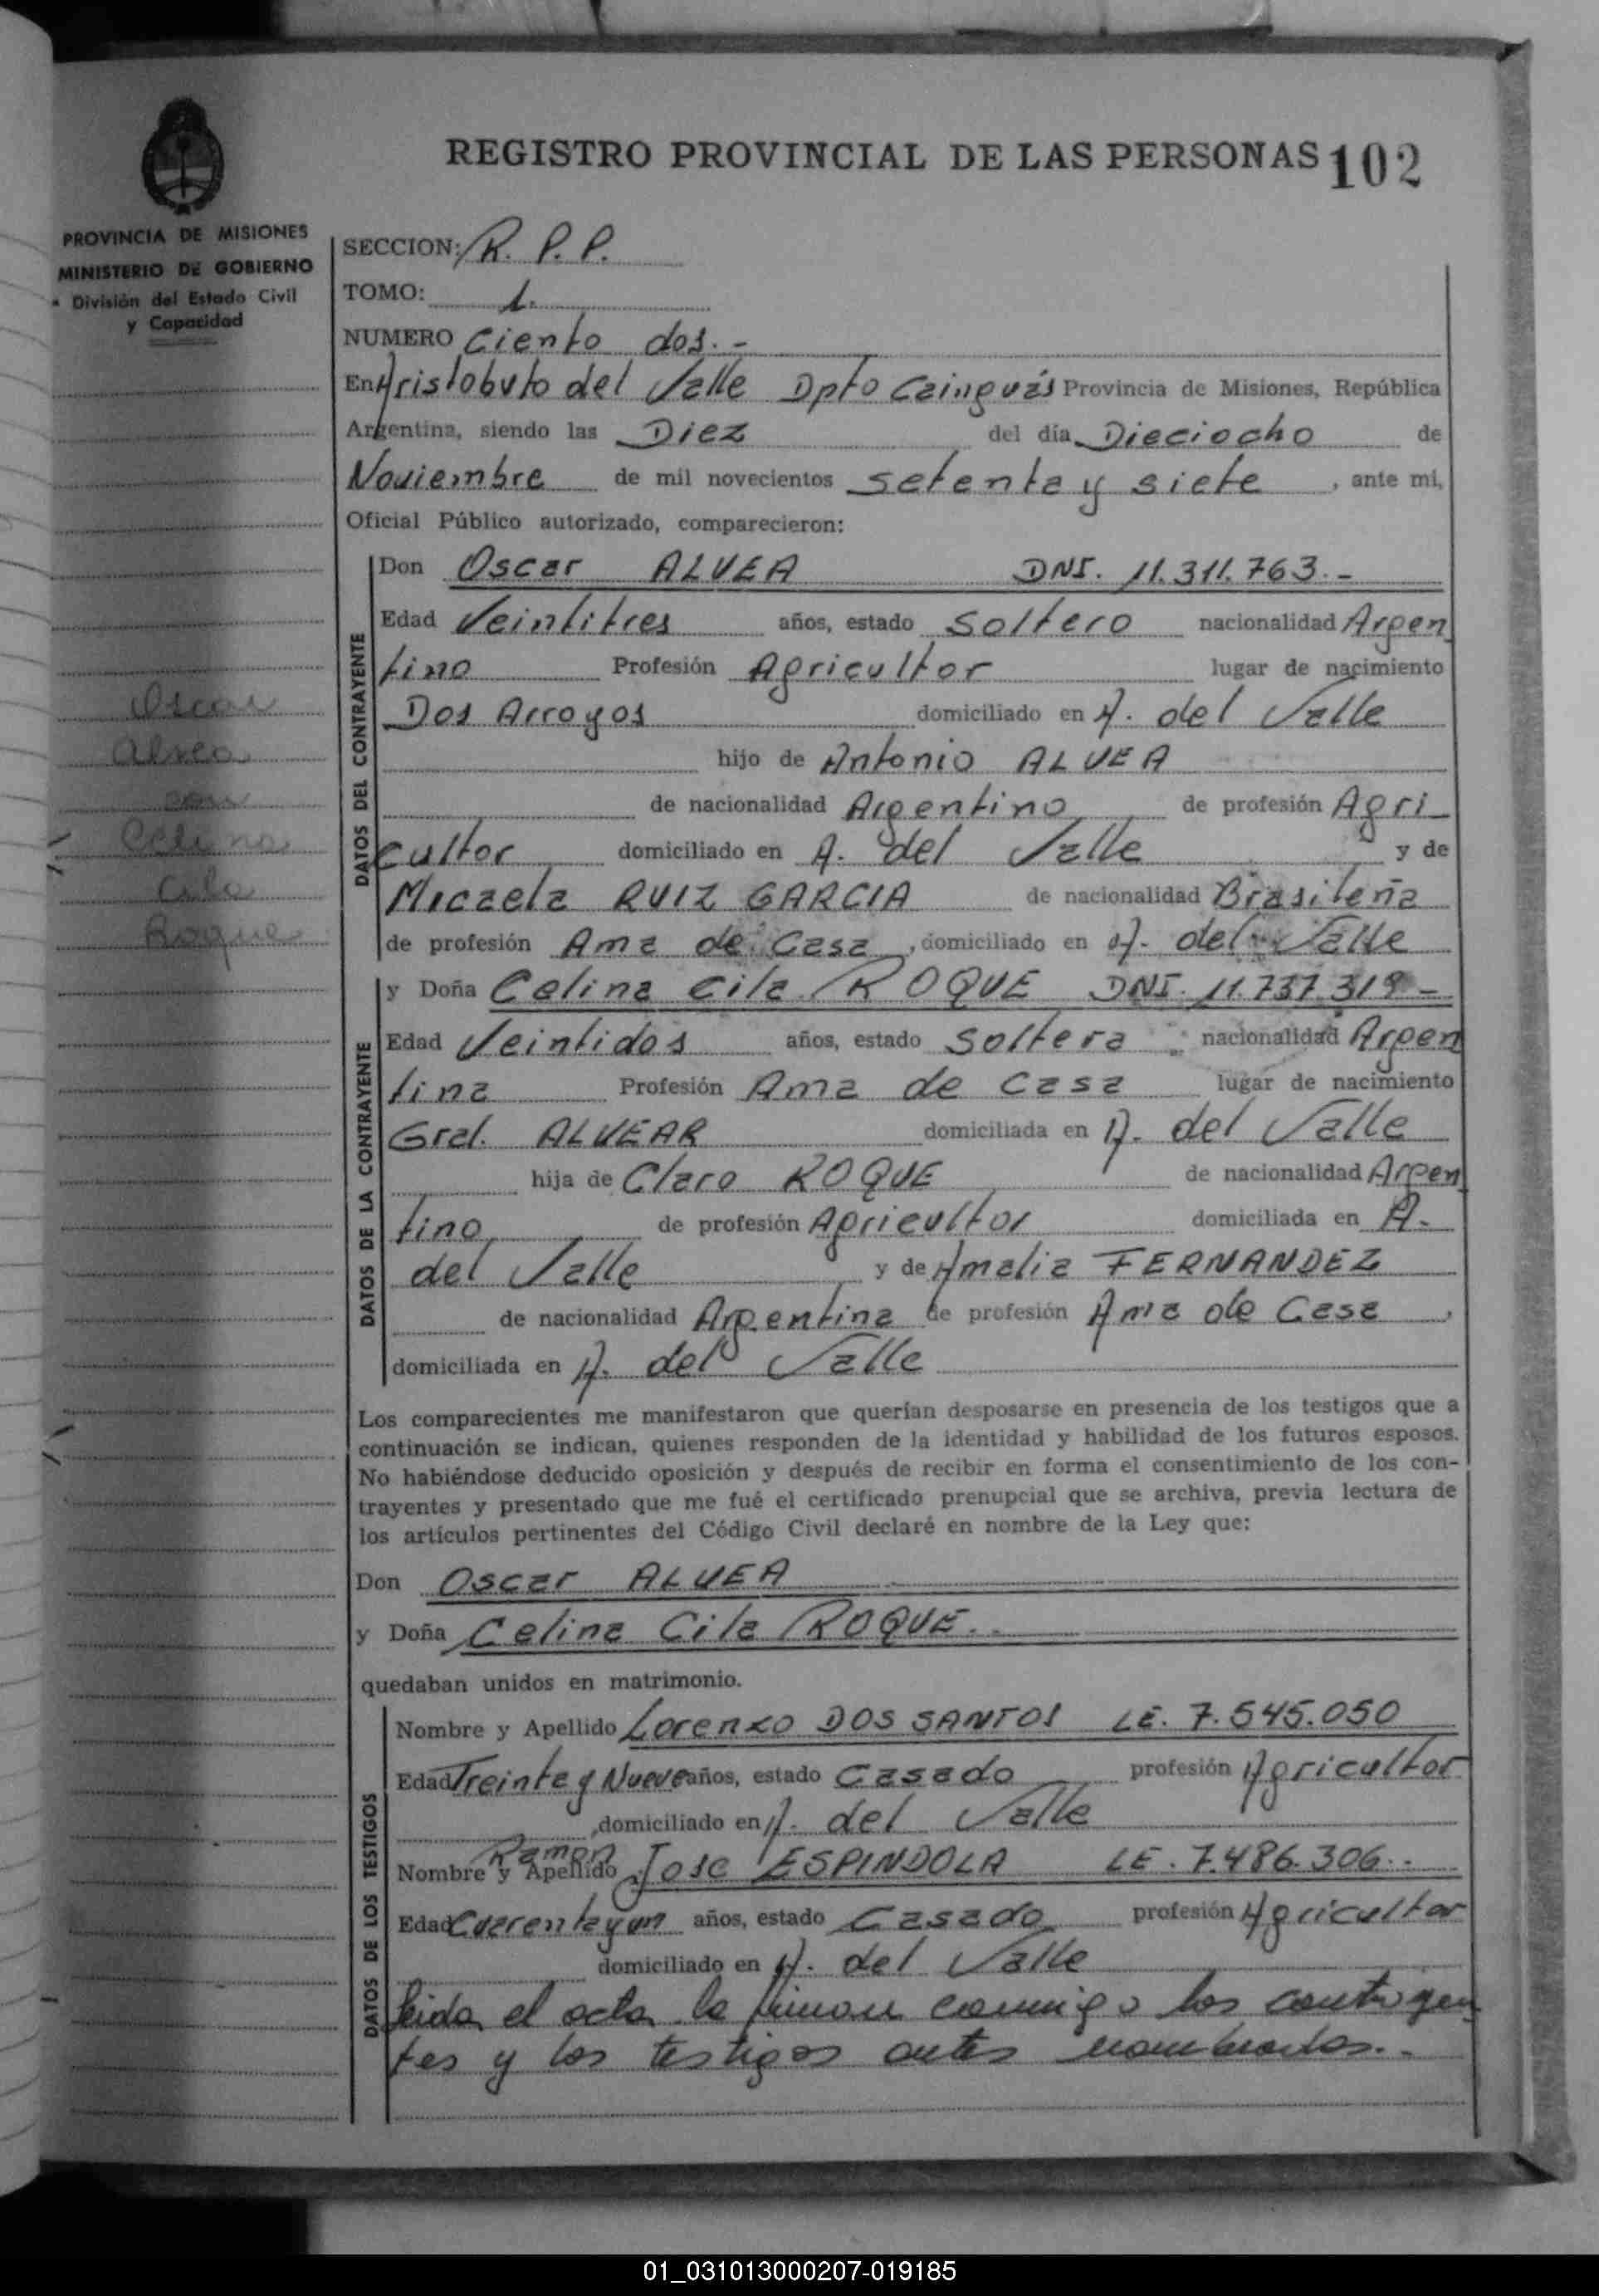 REGISTRO PROVINCIAL DE LAS PERSONAS 102
PROVINCIA DE MISIONES
MINISTERIO DE GOBIERNO
División del Estado Civil
y Capacidad
SECCION: R. P. P.
TOMO: 1.
NUMERO Ciento dos.-
En Aristobulo del Valle Dpto Cainguás Provincia de Misiones, República
Argentina, siendo las Diez del día Dieciocho de
Noviembre de mil novecientos setenta y siete, ante mi,
Oficial Público autorizado, comparecieron:
DATOS DEL CONTRAYENTE
Don Oscar ALVEA DNI. 11.311.763.-
Edad Veintitres años, estado Soltero nacionalidad Argen
tino Profesión Agricultor lugar de nacimiento
Dos Arroyos domiciliado en A. del Valle
hijo de Antonio ALVEA
de nacionalidad Argentino de profesión Agri
cultor domiciliado en A. del Valle y de
Micaela RUIZ GARCIA de nacionalidad Brasileña
de profesión Ama de Casa, domiciliado en A. del Valle
Oscar
Alvea
con
Celina
Cila
Roque
DATOS DE LA CONTRAYENTE
y Doña Celina Cila ROQUE DNI. 11.737.319-
Edad Veintidos años, estado Soltera nacionalidad Argen
tina Profesión Ama de Casa lugar de nacimiento
Gral. ALVEAR domiciliada en A. del Valle
hija de Claro ROQUE de nacionalidad Argen
tino de profesión Agricultor domiciliada en A.
del Valle y de Amalia FERNANDEZ
de nacionalidad Argentina de profesión Ama de Casa,
domiciliada en A. del Valle
Los comparecientes me manifestaron que querían desposarse en presencia de los testigos que a
continuación se indican, quienes responden de la identidad y habilidad de los futuros esposos.
No habiéndose deducido oposición y después de recibir en forma el consentimiento de los con-
trayentes y presentado que me fué el certificado prenupcial que se archiva, previa lectura de
los artículos pertinentes del Código Civil declaré en nombre de la Ley que:
Don Oscar ALVEA
y Doña Celina Cila ROQUE.
quedaban unidos en matrimonio.
DATOS DE LOS TESTIGOS
Nombre y Apellido Lorenzo DOS SANTOS LE. 7.545.050
Edad Treinta y Nueve años, estado Casado profesión Agricultor
,domiciliado en A. del Valle
Ramon
Nombre y Apellido Jose ESPINDOLA LE. 7.486.306.-
Edad Cuarentayun años, estado Casado profesión Agricultor
domiciliado en A. del Valle
Leida el acta la firman conmigo los contrayen
tes y los testigos antes nombrados.-
01_031013000207-019185